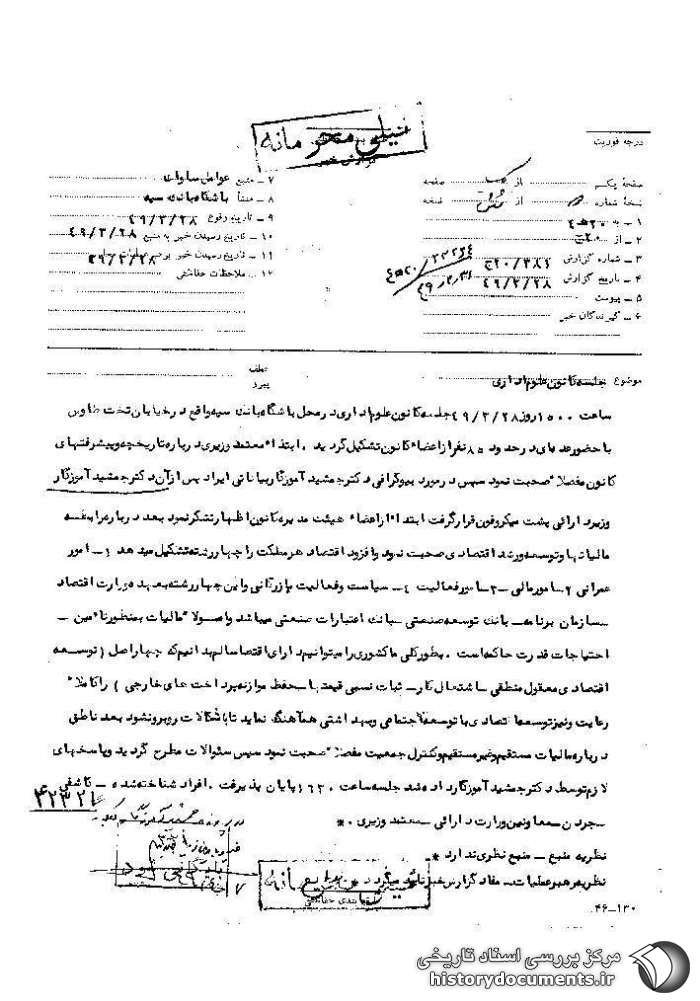 خیلی محرمانه
گزارش خبر
درجه فوریت
صفحه یکم از صفحه
نسخه شماره از نسخه
۱ ـ به
۲ ـ از
۳ ـ شماره گزارش ۳۸۱/۲۰ج
۴ ـ تاریخ گزارش ۴۹/۳/۲۸
۵ ـ پیوست
۶ ـ گیرندگان خبر
۷ ـ منبع عوامل ساواک
۸ ـ منشأ باشگاه بانک سپه
۹ ـ تاریخ وقوع ۴۹/۳/۲۸
۱۰ ـ تاریخ رسیدن خبر به منبع ۴۹/۳/۲۸
۱۱ ـ تاریخ رسیدن خبر برهبر عملیات ۴۹/۳/۲۸
۱۲ ـ ملاحظات حفاظتی
موضوع جلسه کانون علوم اداری
عطف
پیرو
ساعت ۱۵۰۰ روز ۴۹/۳/۲۸ جلسه کانون علوم اداری در محل باشگاه بانک سپه واقع در خیابان تخت طاوس
با حضور عده‌ای در حدود ۸۵ نفر از اعضاء کانون تشکیل گردید . ابتدا معتمد وزیری درباره تاریخچه و پیشرفتهای
کانون مفصلاً صحبت نمود سپس در مورد بیوگرافی دکتر جمشید آموزگار بیاناتی ایراد پس از آن دکتر جمشید آموزگار
وزیر دارائی پشت میکروفون قرار گرفت ابتدا از اعضاء هیئت مدیره کانون اظهار تشکر نمود بعد درباره رابطه
مالیاتها و توسعه و رشد اقتصادی صحبت نمود و افزود اقتصاد هر مملکت را چهار رشته تشکیل میدهد ۱ـ امور
عمرانی ۲ـ امور مالی ـ۳ـ امور فعالیت ۴ـ سیاست و فعالیت بازرگانی و این چهار رشته بعهده وزارت اقتصاد
ـ سازمان برنامه ـ بانک توسعه صنعتی ـ بانک اعتبارات صنعتی میباشد و اصولاً مالیات بمنظور تامین ـ
احتیاجات قدرت حاکمه است . بطور کلی ما کشوری را میتوانیم دارای اقتصاد سالم بدانیم که چهار اصل ( توسعه
اقتصادی معقول منطقی ـ اشتغال کار ـ ثبات نسبی قیمتها ـ حفظ موازنه پرداخت های خارجی ) را کاملاً
رعایت و نیز توسعه اقتصادی با توسعه اجتماعی و بهداشتی هم‌آهنگ نماید تا با اشکالات روبرو نشود بعد ناطق
درباره مالیات مستقیم و غیر مستقیم و کنترل جمعیت مفصلاً صحبت نمود سپس سئوالات مطرح گردید و پاسخهای
لازم توسط دکتر جمشید آموزگار داده شد جلسه ساعت ۱۶۳۰ پایان پذیرفت . افراد شناخته شده ـ کاشفی
ـ معاونین وزارت دارائی ـ معتمد وزیری . *
نظریه منبع ـ منبع نظری ندارد *
نظریه رهبر عملیات ـ مفاد گزارش خبر تائید میگردد
خیلی محرمانه
طبقه بندی حفاظتی
۱۳۰-۴۶
مرکز بررسی اسناد تاریخی
historydocuments.ir